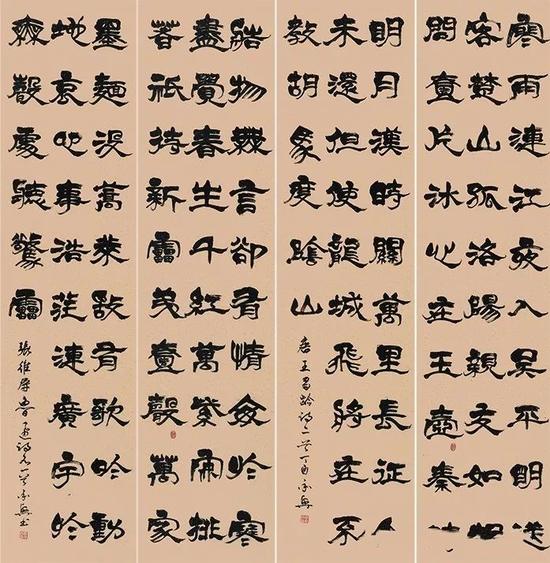 寒雨連江夜入吴平明送
客楚山孤洛陽親友如相
問壹片冰心在玉壺秦
明月漢時關萬里長征人
未還但使龍城飛將在不
教胡馬度陰山
唐王昌齡詩二首丁酉永興
造物無言卻有情每於寒
盡覺春生千紅萬紫安排
著祇待新雷第壹聲萬家
墨麵没蒿萊敢有歌吟動
地哀心事浩茫連廣宇於
無聲處聽驚雷
張維屏魯迅詩各一首永興書